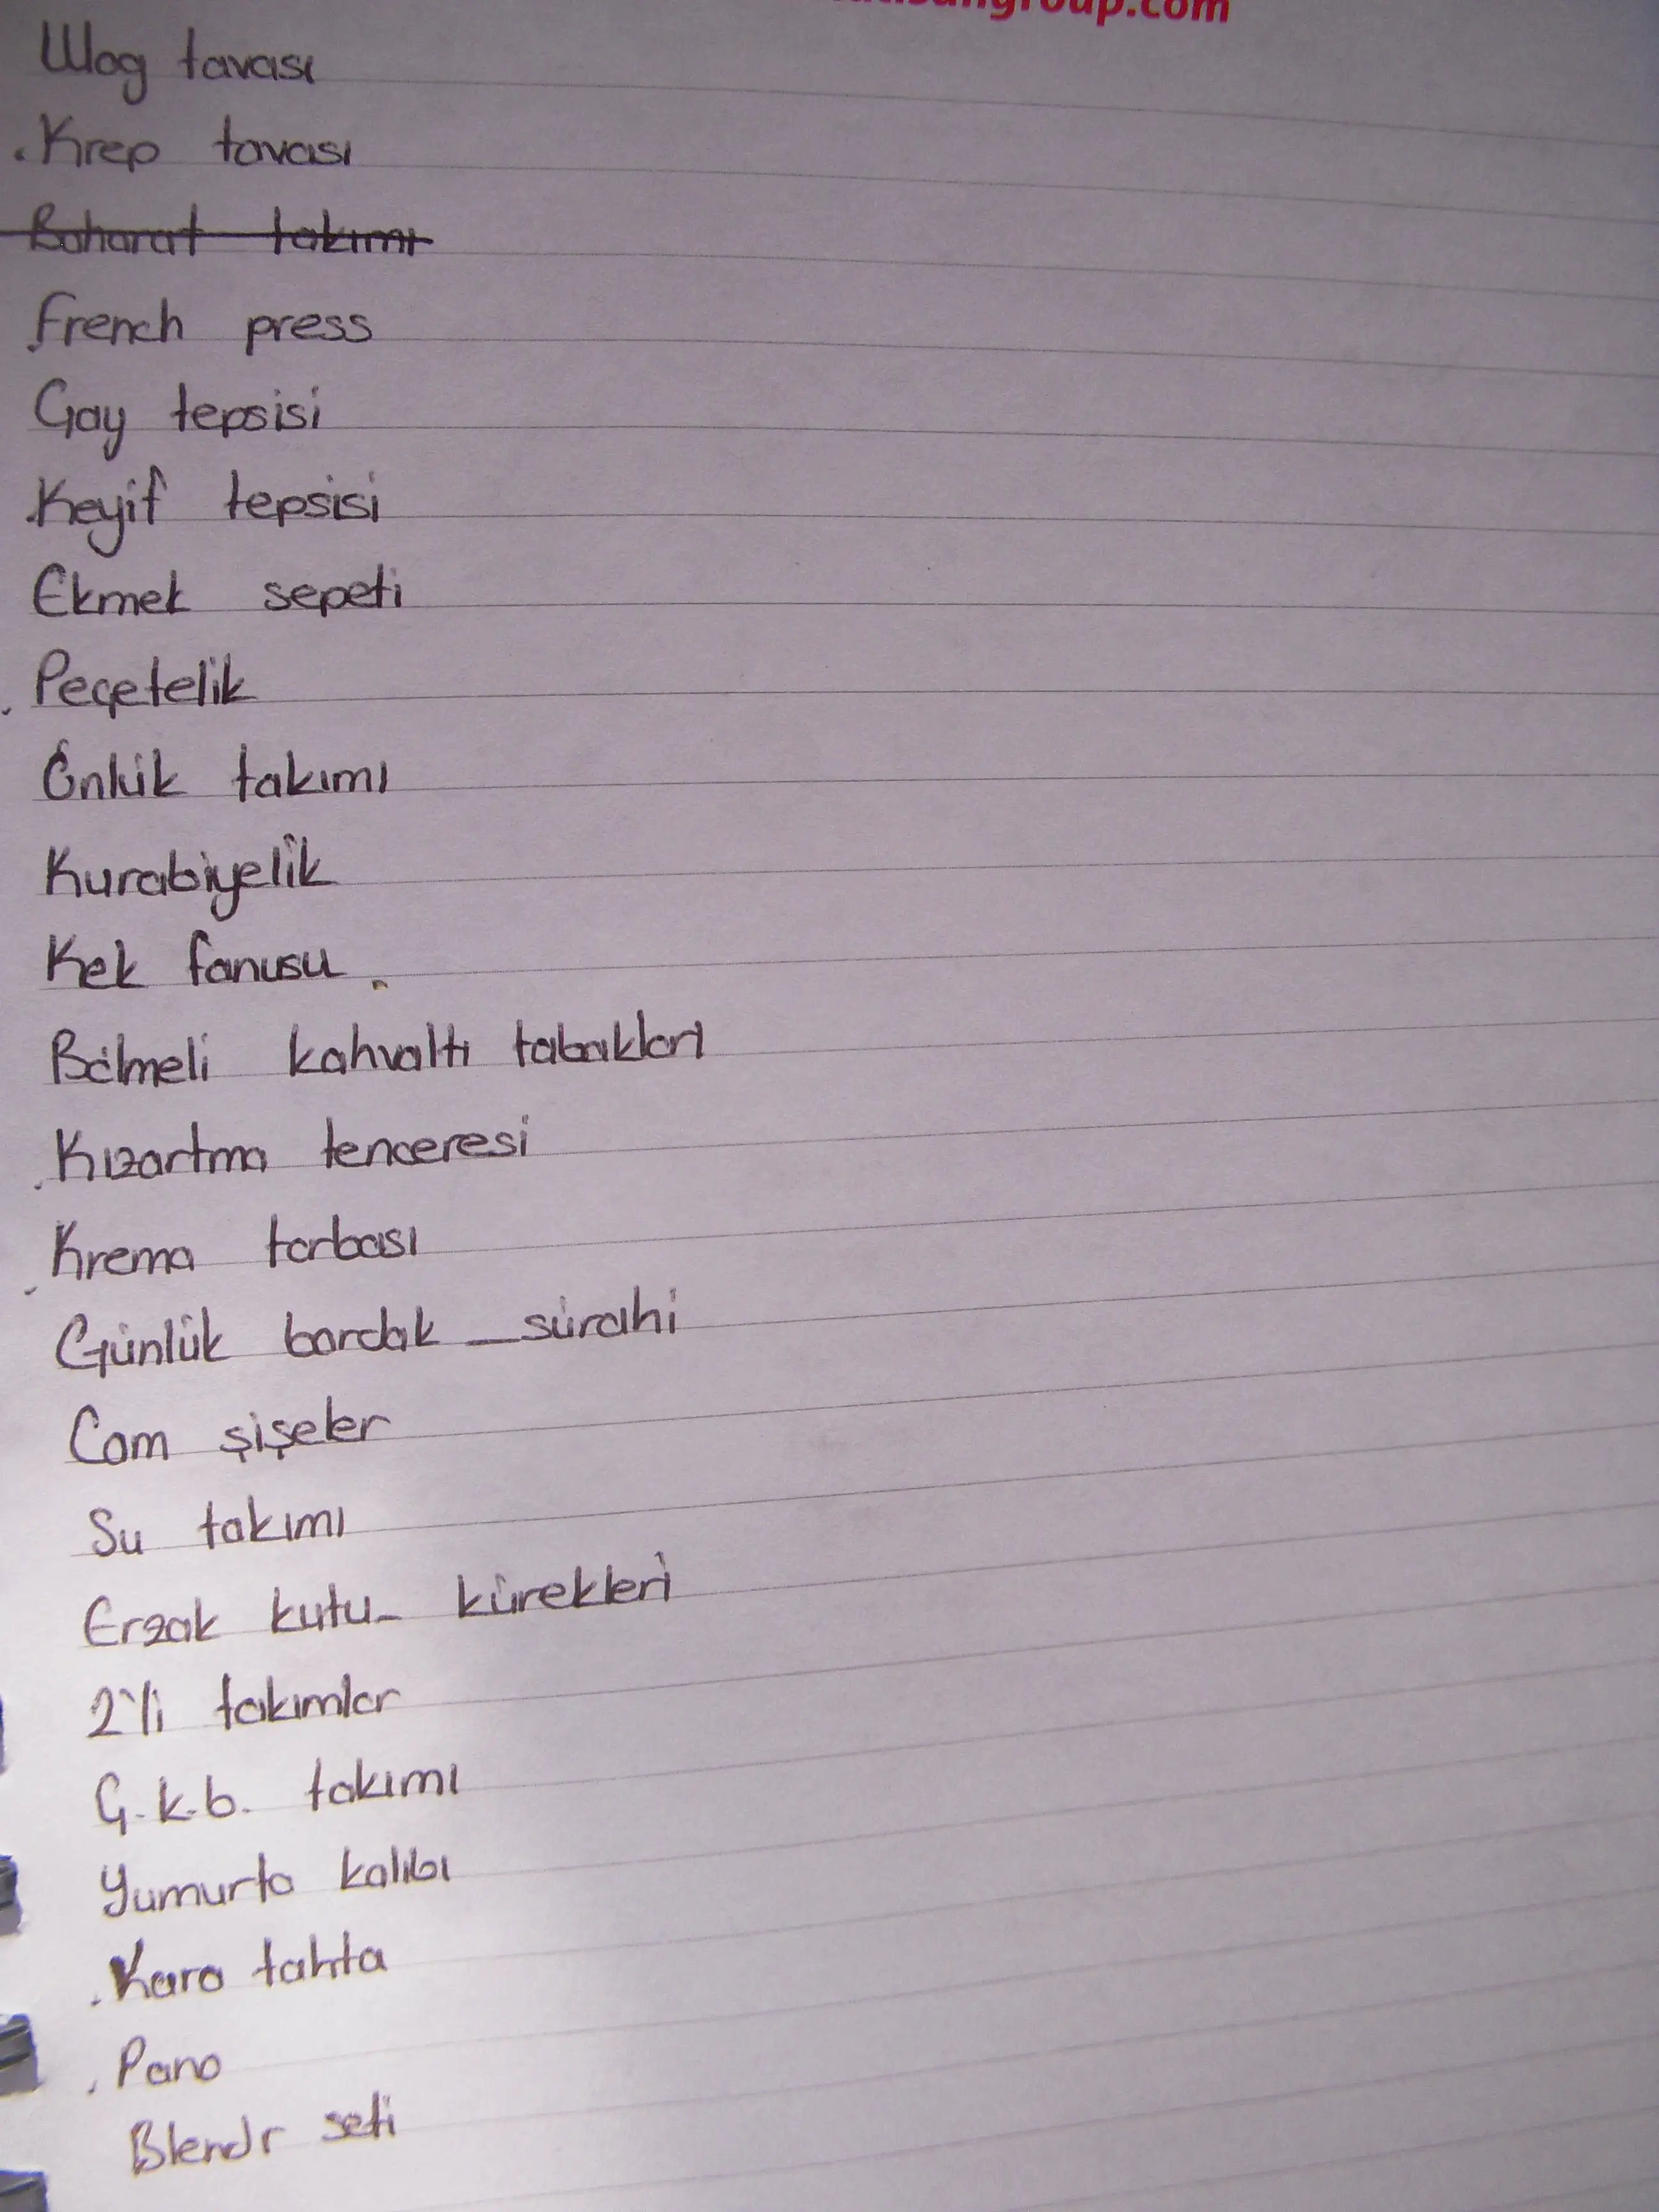 group.com
Wog tavası
.Krep tavası
Baharat takımı
French press
Çay tepsisi
.Keyif tepsisi
Ekmek sepeti
.Peçetelik
Önlük takımı
Kurabiyelik
Kek fanusu
Bölmeli kahvaltı tabakları
.Kızartma tenceresi
.Krema torbası
Günlük bardak _sürahi
Cam şişeler
Su takımı
Erzak kutu_ kürekleri
2'li takımlar
Ç.k.b. takımı
Yumurta kalıbı
.Kara tahta
.Pano
Blendr seti